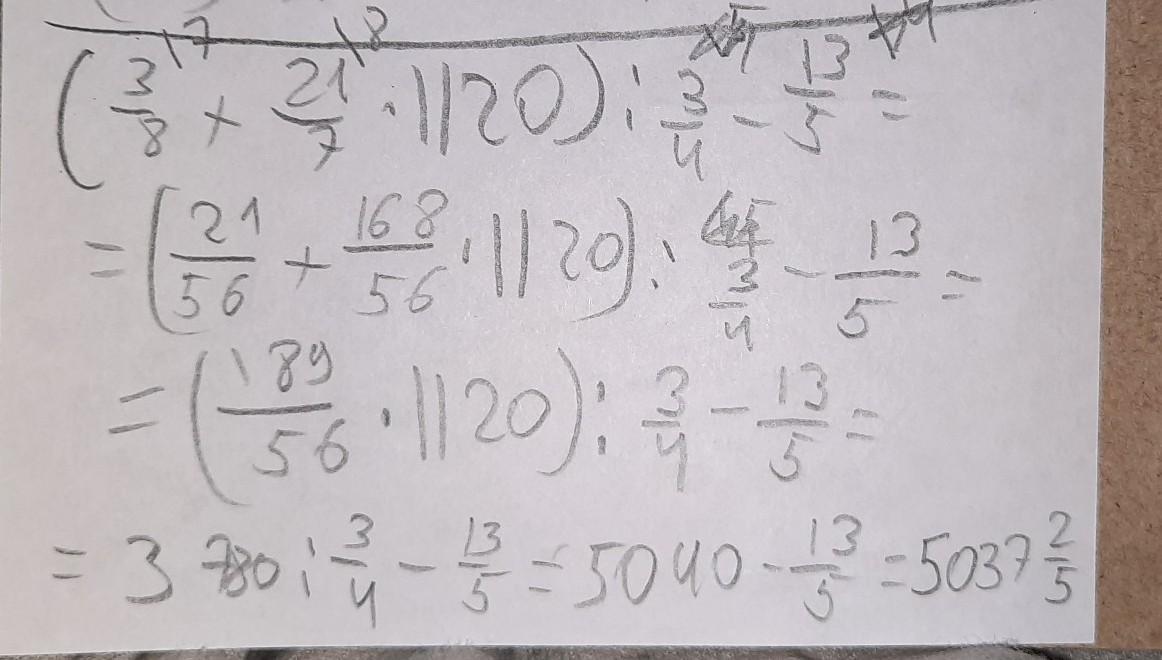 (3/8 \7 + 21/7 \8 · 1120) : 3/4 - 13/5 =
= (21/56 + 168/56 · 1120) : 3/4 - 13/5 =
= (189/56 · 1120) : 3/4 - 13/5 =
= 3 780 : 3/4 - 13/5 = 5040 - 13/5 = 5037 2/5